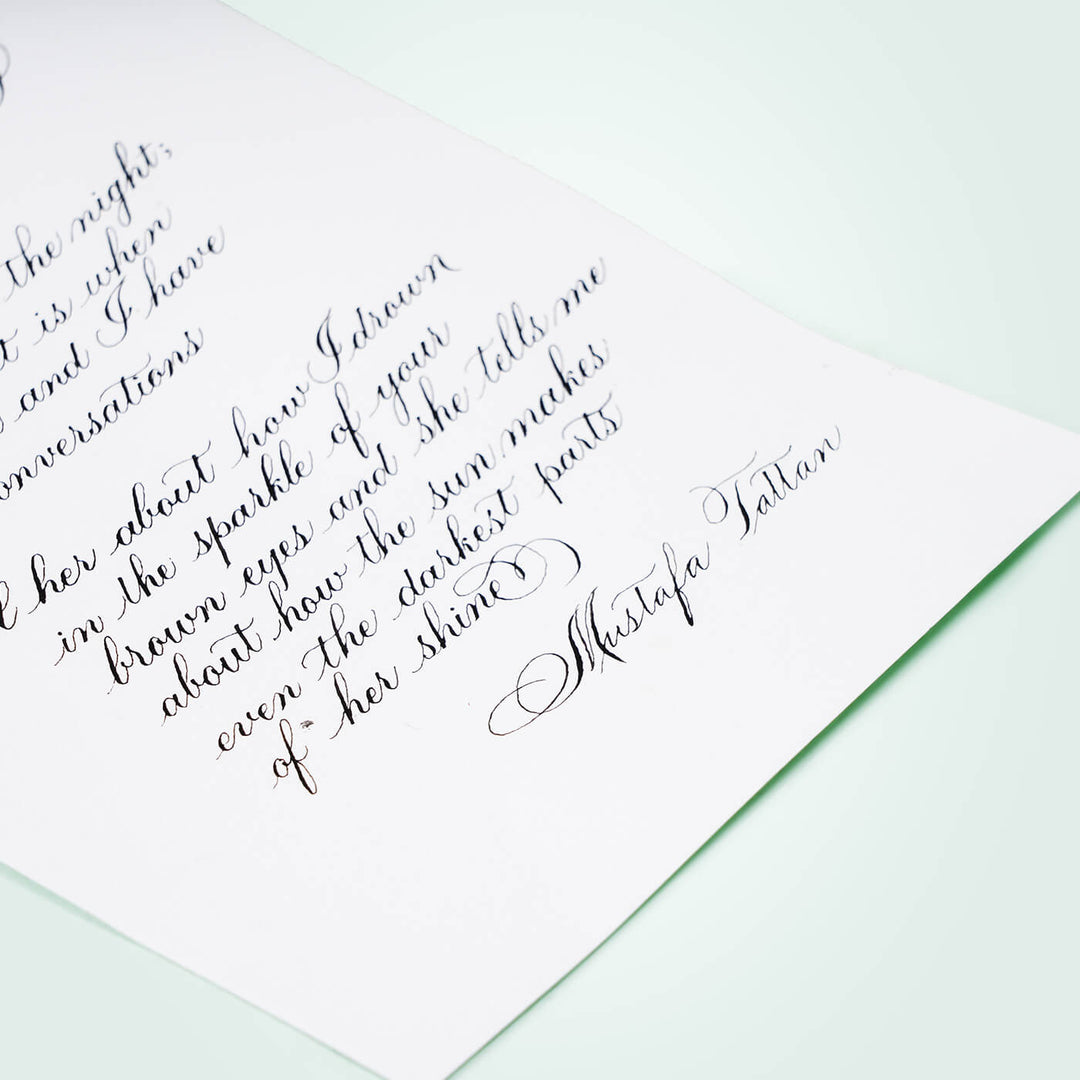 the night;
is when
and I have
her about how I drown
in the sparkle of your
brown eyes and she tells me
about how the sun makes
even the darkest parts
of her shine
Mustafa Tattan